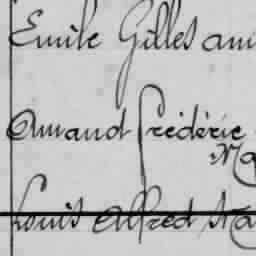 Emile Gilles
Amand Frédéric
Louis Alfred